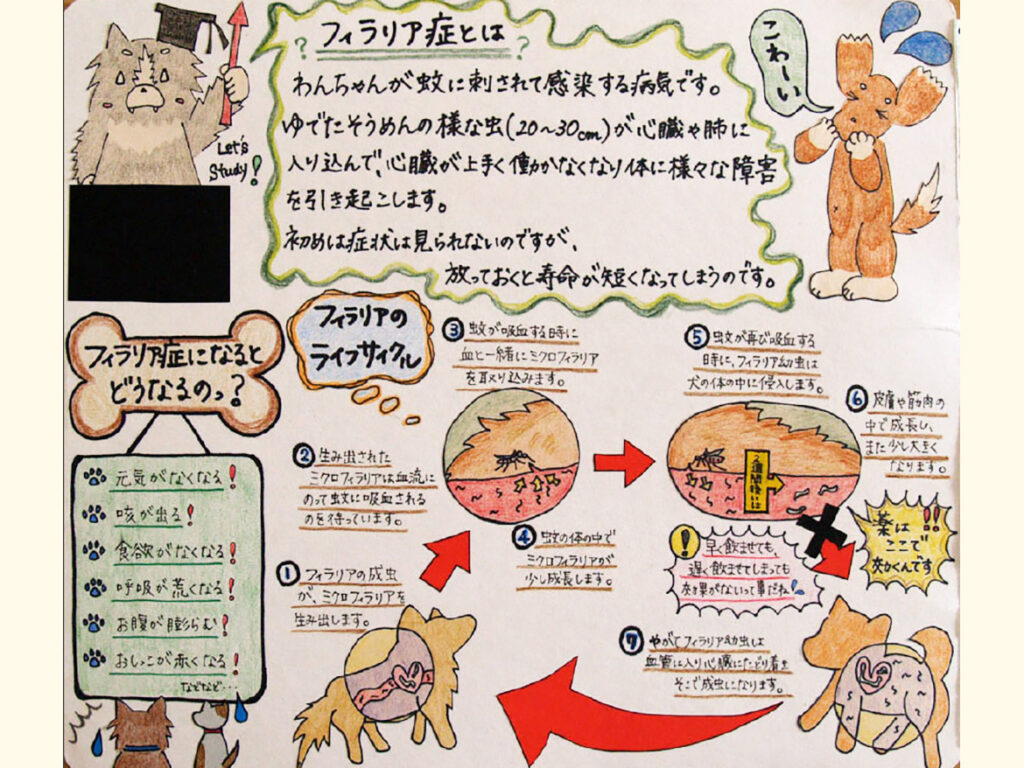 フィラリア症とは
? ?
わんちゃんが蚊に刺されて感染する病気です。
ゆでたそうめんの様な虫(20～30cm)が心臓や肺に
入り込んで、心臓が上手く働かなくなり体に様々な障害
を引き起こします。
初めは症状は見られないのですが、
放っておくと寿命が短くなってしまうのです。
Let's
Study!
こわーい
フィラリア症になると
どうなるのっ?
元気がなくなる!
咳が出る!
食欲がなくなる!
呼吸が荒くなる!
お腹が膨らむ!
おしっこが赤くなる!
などなど…
フィラリアの
ライフサイクル
① フィラリアの成虫
が、ミクロフィラリアを
生み出します。
② 生み出された
ミクロフィラリアは血流に
のって蚊に吸血される
のを待っています。
③ 蚊が吸血する時に
血と一緒にミクロフィラリア
を取り込みます。
④ 蚊の体の中で
ミクロフィラリアが
少し成長します。
⑤ 蚊が再び吸血する
時に、フィラリア幼虫は
犬の体の中に侵入します。
2週間後いは
⑥ 皮膚や筋肉の
中で成長し、
また少し大きく
なります。
薬は!!
ここで
効くんです
! 早く飲ませても、
遅く飲ませてしまっても
効果がないって事だね!
⑦ やがてフィラリア幼虫は
血管に入り心臓にたどり着き
そこで成虫になります。